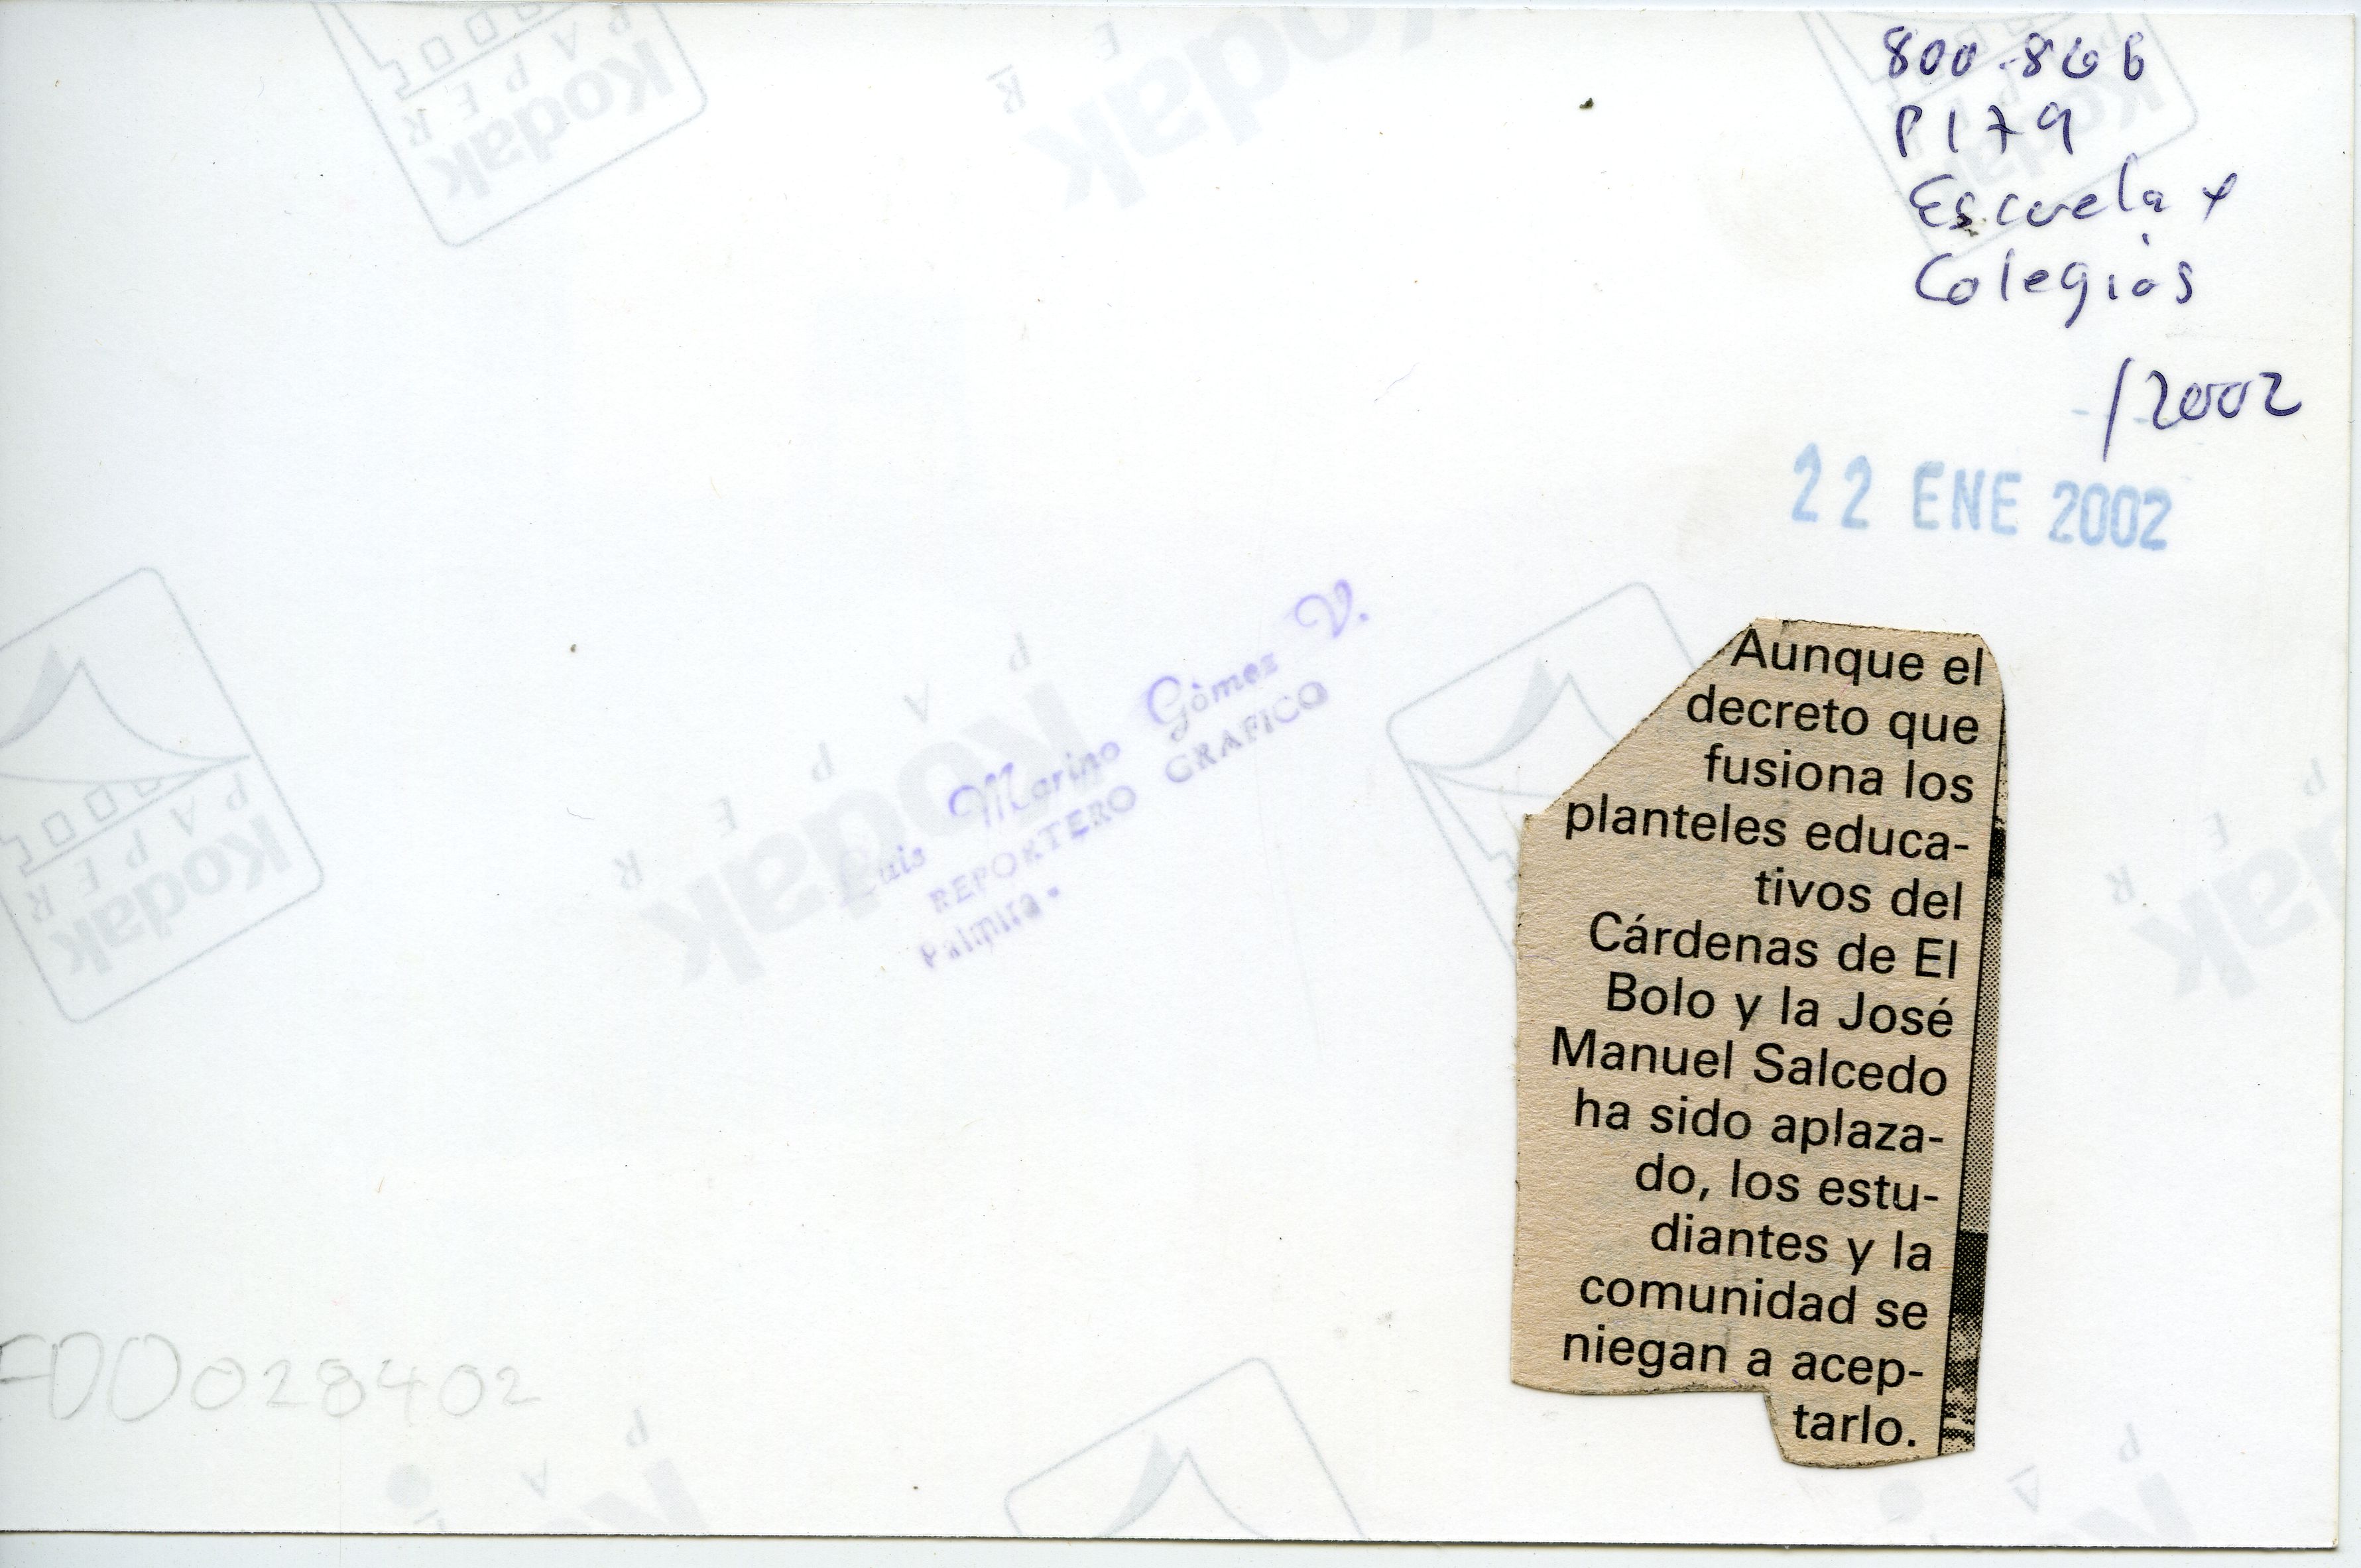 800-866
P179
Escuela y
Colegios
/2002
22 ENE 2002
Luis Marino Gòmez V.
REPORTERO GRAFICO
Palmira.
Aunque el
decreto que
fusiona los
planteles educa-
tivos del
Cárdenas de El
Bolo y la José
Manuel Salcedo
ha sido aplaza-
do, los estu-
diantes y la
comunidad se
niegan a acep-
tarlo.
FDD028402
Kodak
PAPER